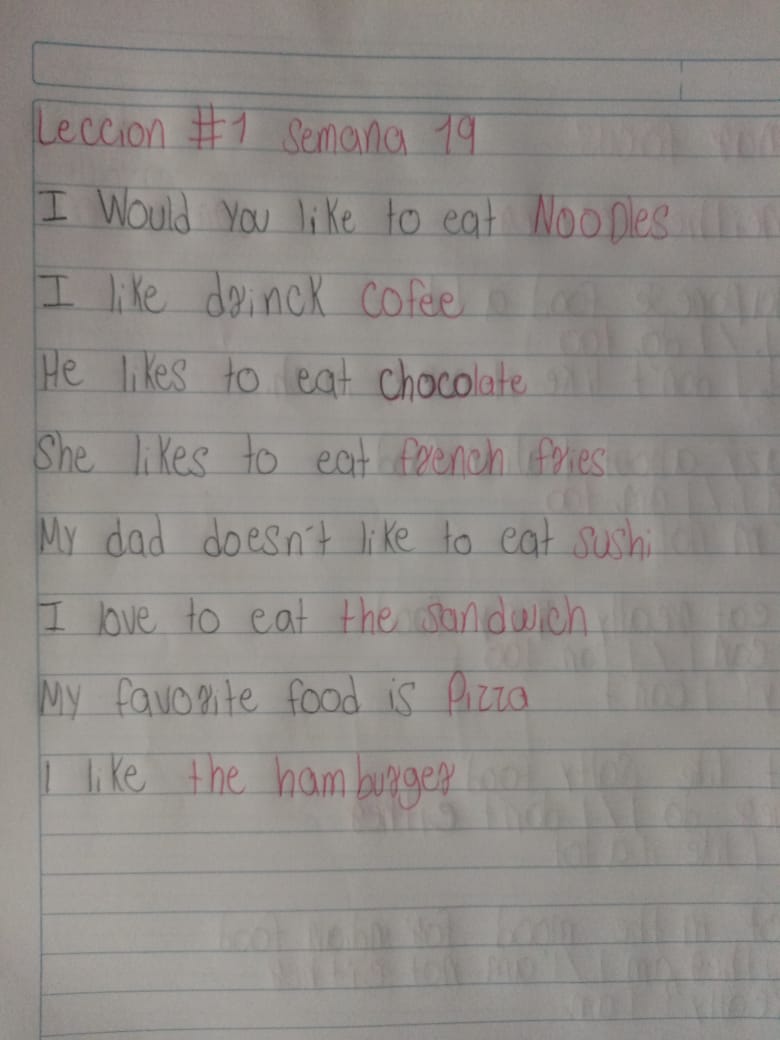 Leccion #1 Semana 19
I Would you like to eat Noodles
I like drinck cofee
He likes to eat chocolate
She likes to eat french fries
My dad doesn't like to eat sushi
I love to eat the sandwich
My favorite food is Pizza
I like the hamburger